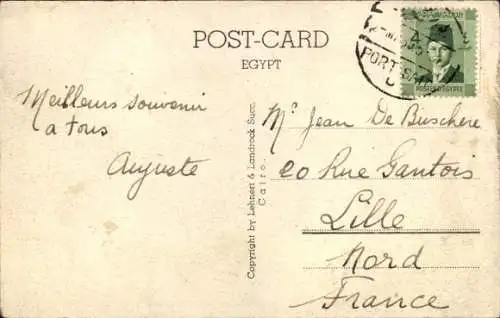 POST-CARD
EGYPT
POSTES D'EGYPTE
PORT SAID
Meilleurs souvenir
a tous
Auguste
Copyright by Lehnert & Landrock Succ.
Cairo.
Mr Jean De Buschere
20 Rue Gantois
Lille
Nord
France